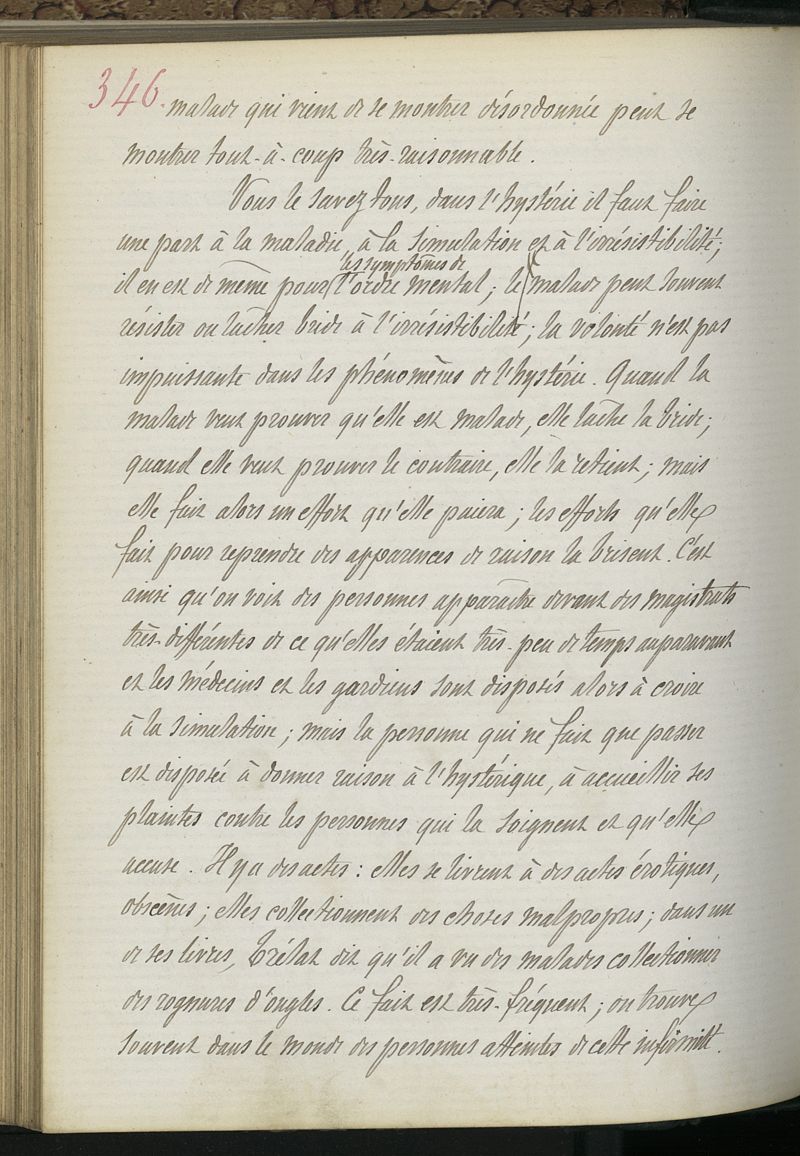 346.
malade qui vient de se montrer désordonnée peut se
montrer tout-à-coup très-raisonnable.
Vous le savez tous, dans l'hystérie il faut faire
une part à la maladie, à la simulation et à l'irrésistibilité;
les symptômes de
il en est de même pour (l'ordre mental; le malade peut souvent
résister ou lâcher bride à l'irrésistibilité; la volonté n'est pas
impuissante dans les phénomènes de l'hystérie. Quand la
malade veut prouver qu'elle est malade, elle lâche la bride;
quand elle veut prouver le contraire, elle la retient; mais
elle fait alors un effort qu'elle paiera; les efforts qu'elle
fait pour reprendre des apparences de raison la brisent. C'est
ainsi qu'on voit des personnes apparaître devant des magistrats
très-différentes de ce qu'elles étaient très-peu de temps auparavant
et les médecins et les gardiens sont disposés alors à croire
à la simulation; mais la personne qui ne fait que passer
est disposée à donner raison à l'hystérique, à accueillir ses
plaintes contre les personnes qui la soignent et qu'elle
accuse. Il y a des actes: elles se livrent à des actes érotiques,
obscènes; elles collectionnent des choses malpropres; dans un
de ses livres, Trélat dit qu'il a vu des malades collectionner
des rognures d'ongles. Ce fait est très-fréquent; on trouve
souvent dans le monde des personnes atteintes de cette infirmité.